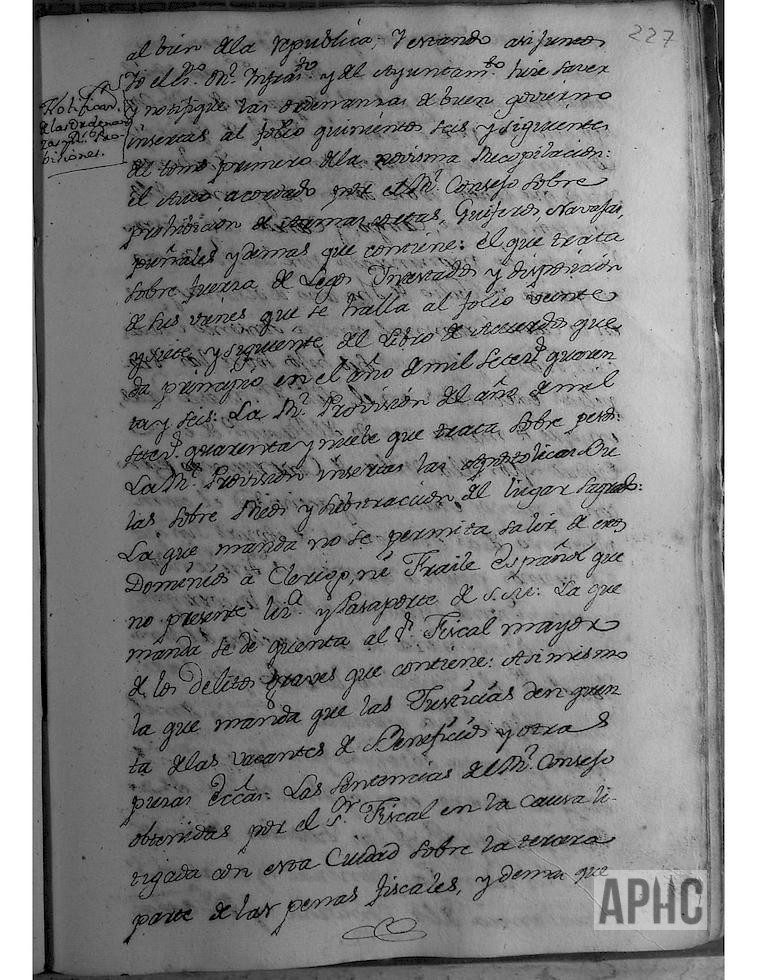 227
al bien dela republica; Y estando asi juntos
Yo el Sno. Rl. Infraso. y del Ayuntamto. hise saver
y notifique las ordenanzas de buen govierno
insertas al folio quinientos seis y siguientes
del tomo primero dela novisima Recopilacion:
el Auto acordado por el Rl. Consejo sobre
prohivicion de armas cortas, Guiferos, Navajas,
puñales y demas que contiene: el que trata
sobre fuerza de Legos Intestados y disposicion
de sus vienes que se halla al folio veinte
y siete y siguiente del Libro de Acuerdos que
da principio en el año de mil setects. quaren
ta y seis: La Rl. Provision del año de mil
setects. quarenta y nuebe que trata sobre
La Rl. Provision insertas las apostolicas Bu
las sobre Reos y substraccion del lugar sagrado:
La que manda no se permita salir de estos
Dominios a Clerigo, ni Fraile español que
no presente liza. y Pasaporte de S. M.: La que
manda se de quenta al Sr. Fiscal mayor
de los delitos graves que contiene: Asimismo
la que manda que las Justicias den quen
ta delas vacantes de Beneficios y otras
piesas Eccas: Las Sentencias del Rl. Consejo
obtenidas por el Sr. Fiscal en la causa li-
tigada con esta Ciudad sobre la tercera
parte de las penas fiscales, y demas que
Notificaon.
de las Ordenan
zas y Rs. Pro-
bisiones.
APHC